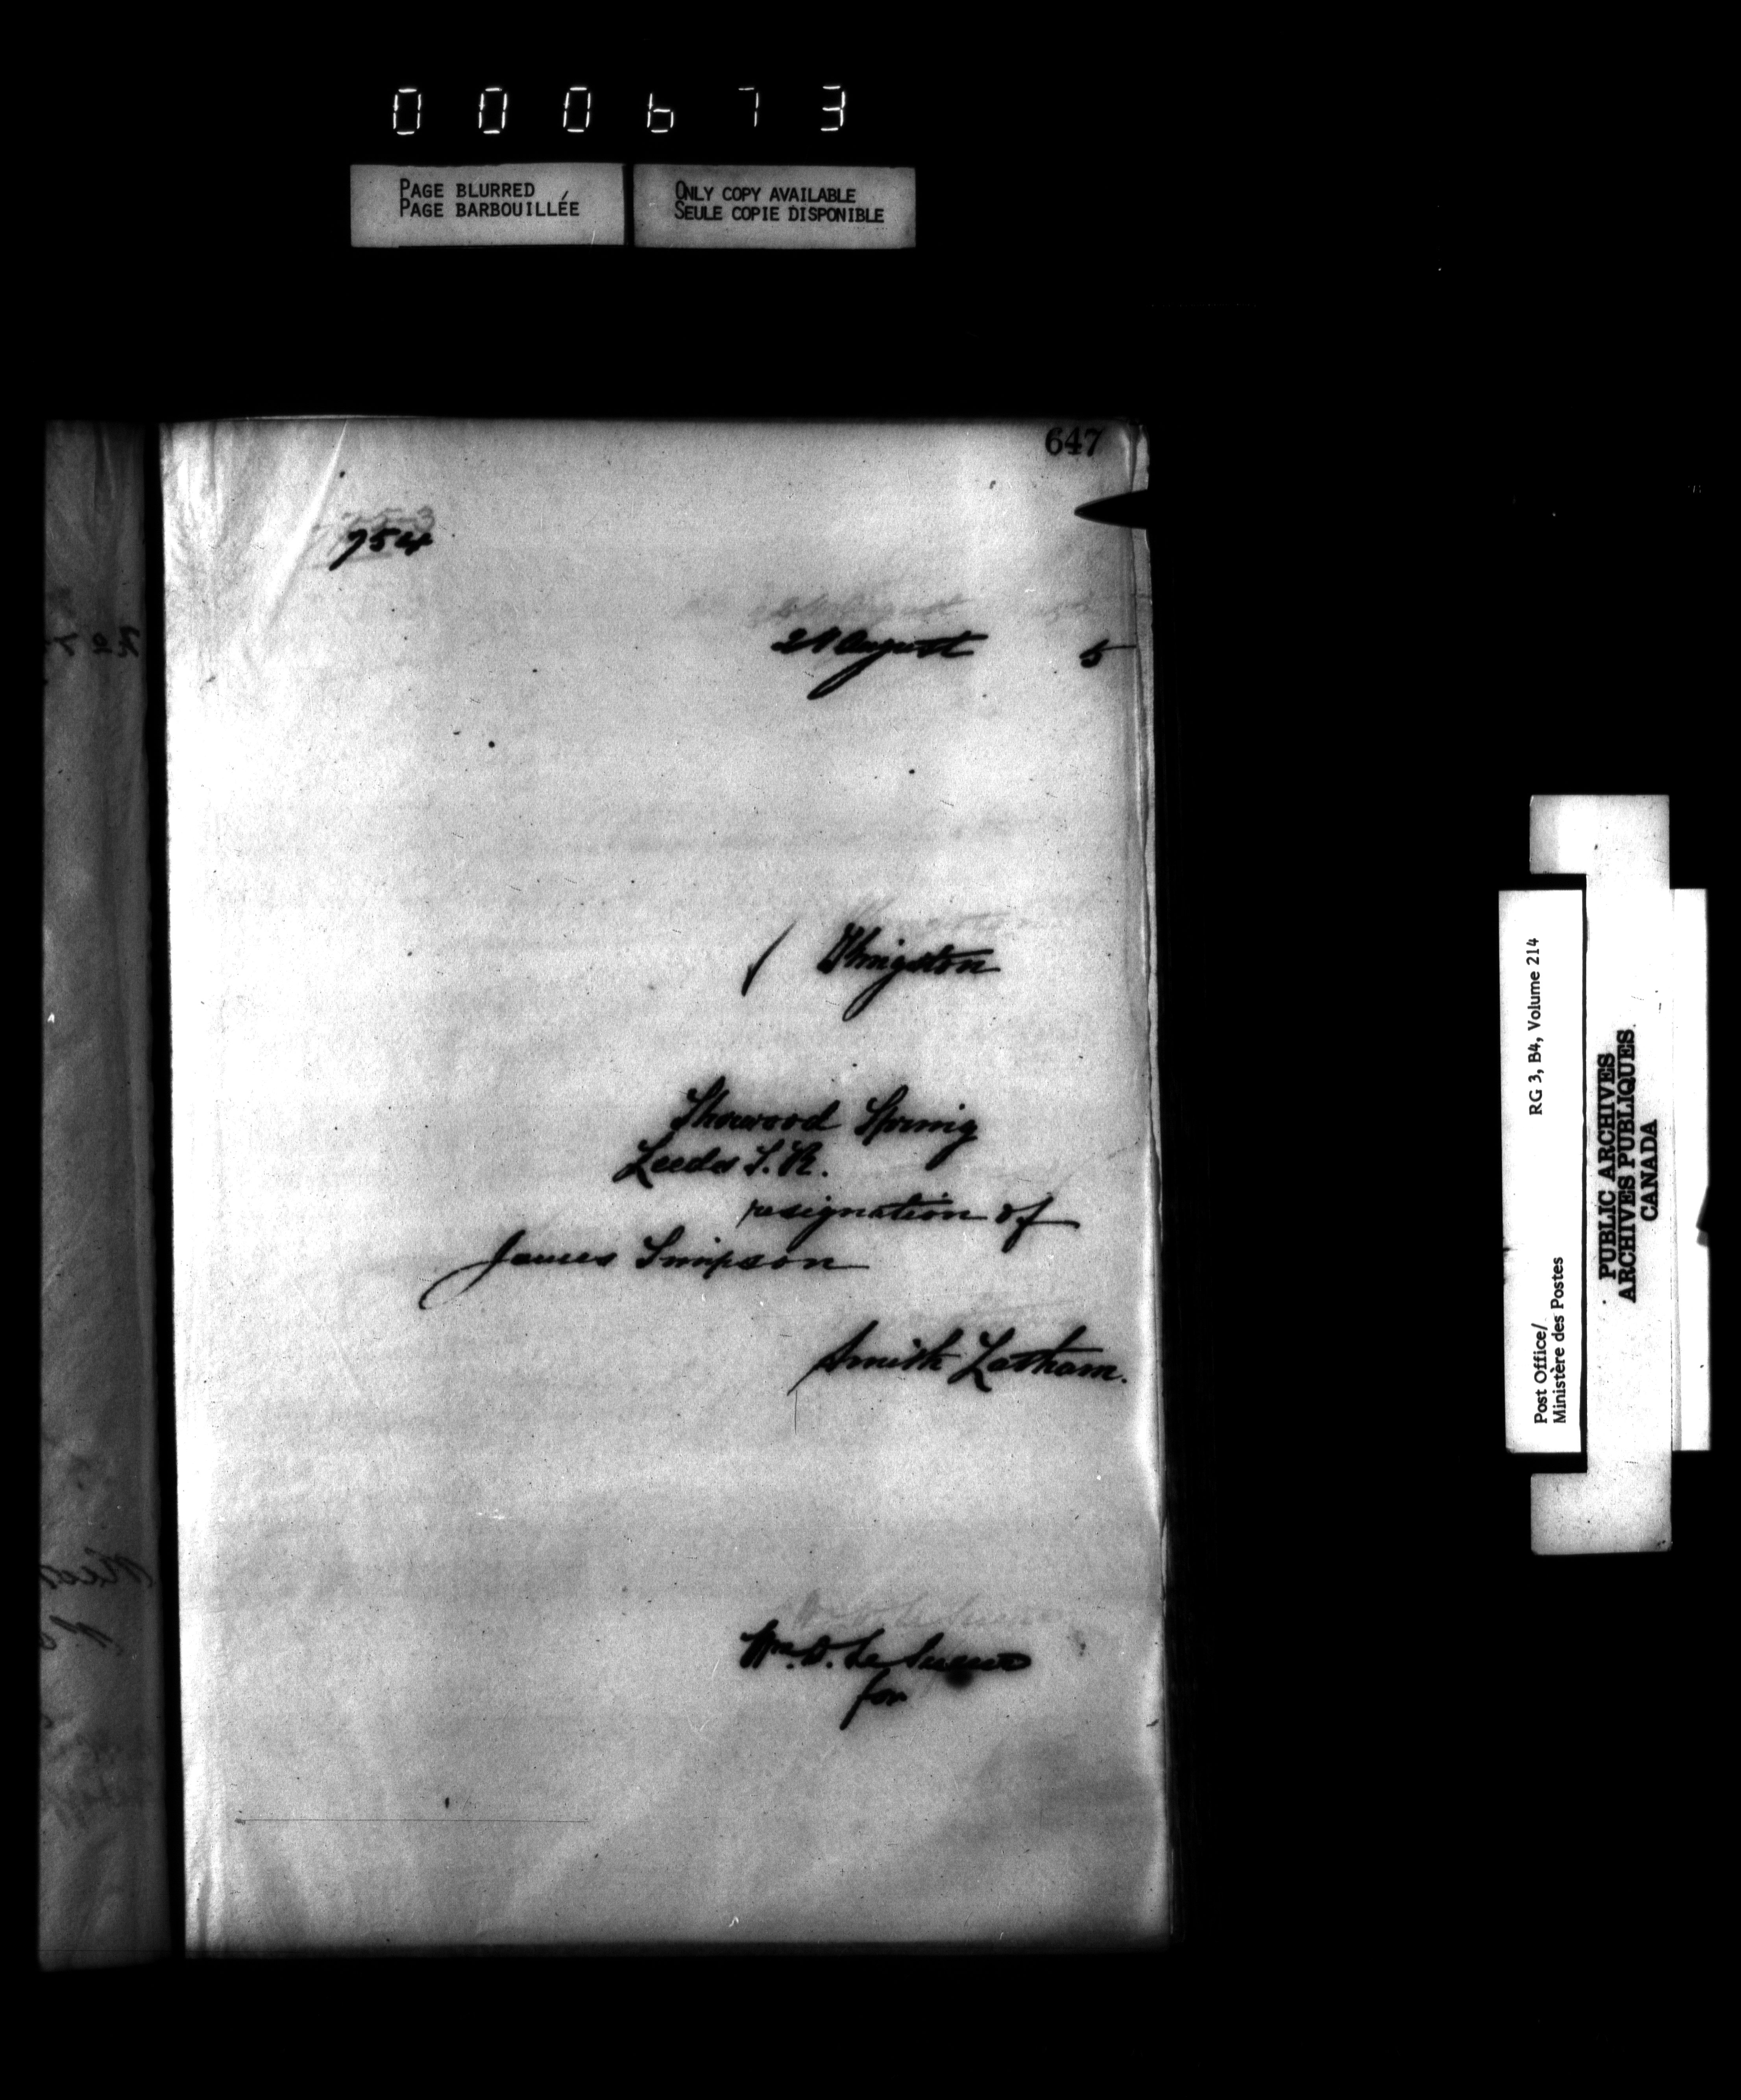 000673
PAGE BLURRED
PAGE BARBOUILLÉE
ONLY COPY AVAILABLE
SEULE COPIE DISPONIBLE
647
753
754
21 August 5
Kingston
Sherwood Spring
Leeds S.R.
resignation of
James Simpson
Smith Latham.
Wm. D. Le Sueur
for
Post Office/ RG 3, B4, Volume 214
Ministère des Postes
PUBLIC ARCHIVES
ARCHIVES PUBLIQUES
CANADA